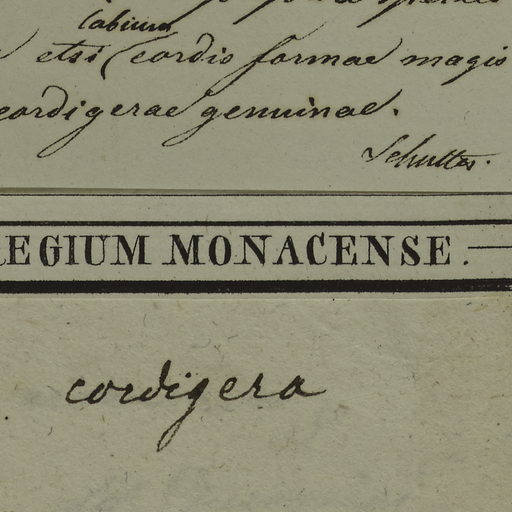 labium
etsi (cordis formae magis
cordigerae genuinae.
Schultes.
REGIUM MONACENSE.
cordigera